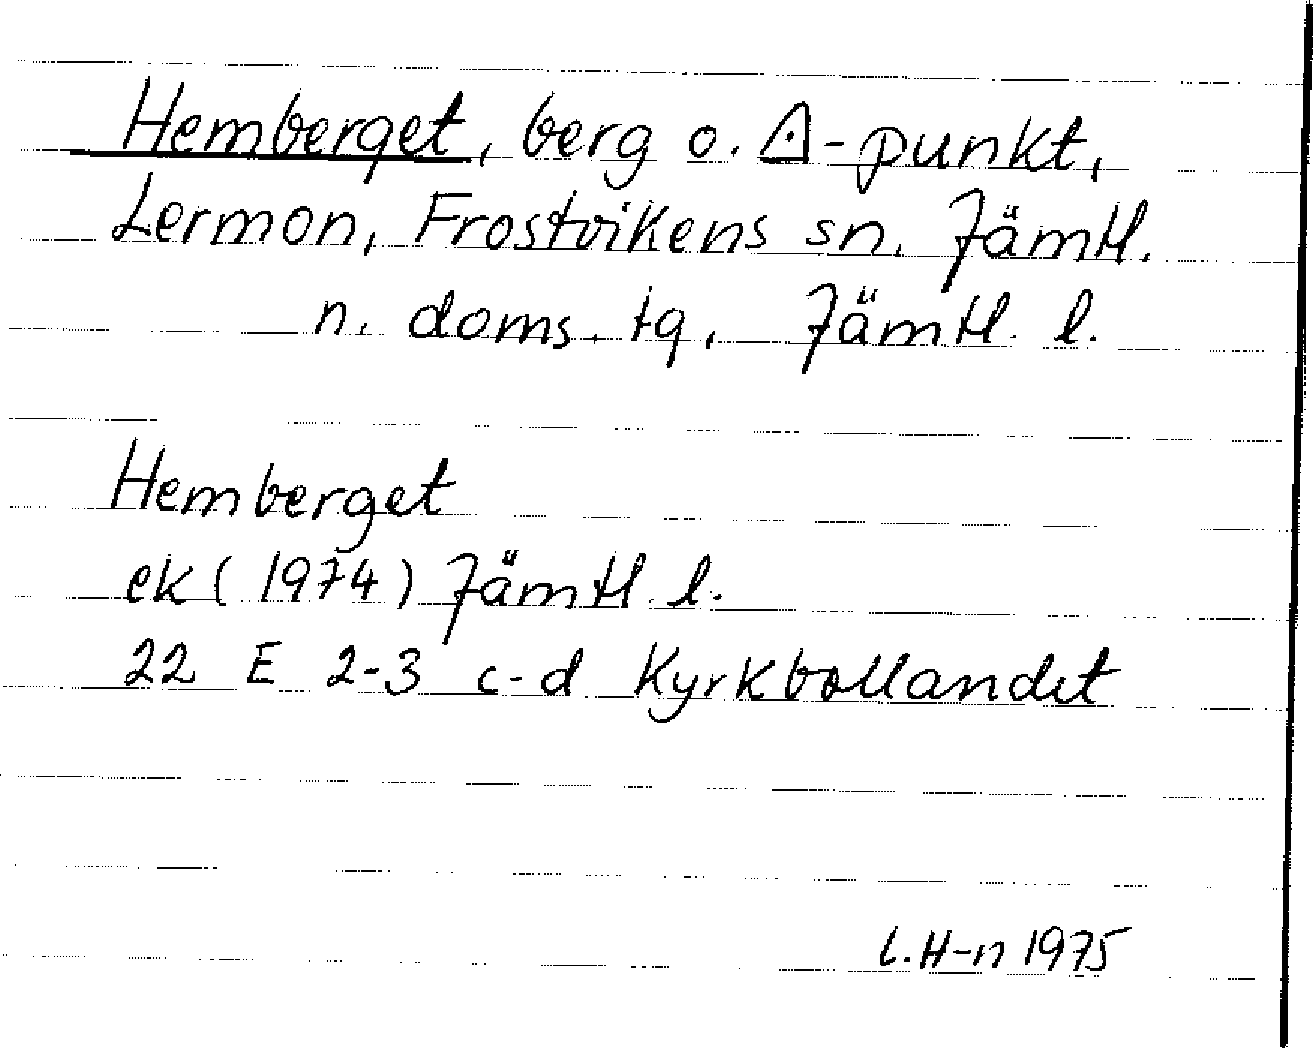 Hemberget, berg o. △-punkt,
Lermon, Frostvikens sn. Jämtl.
n. doms. tg, Jämtl. l.
Hemberget
ek (1974) Jämtl. l.
22 E 2-3 c-d Kyrkbollandet
L. H-n 1975